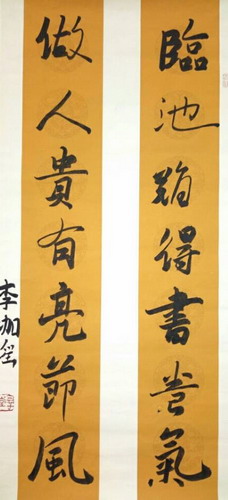 臨池難得書卷氣
做人貴有亮節風
李加